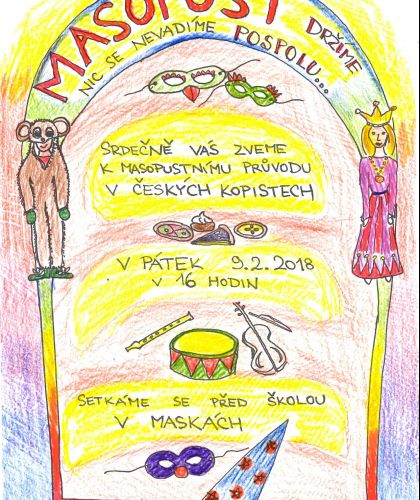 MASOPUST DRŽÍME
NIC SE NEVADÍME POSPOLU...
SRDEČNĚ VÁS ZVEME
K MASOPUSTNÍMU PRŮVODU
V ČESKÝCH KOPISTECH
V PÁTEK 9.2.2018
V 16 HODIN
SETKÁME SE PŘED ŠKOLOU
V MASKÁCH